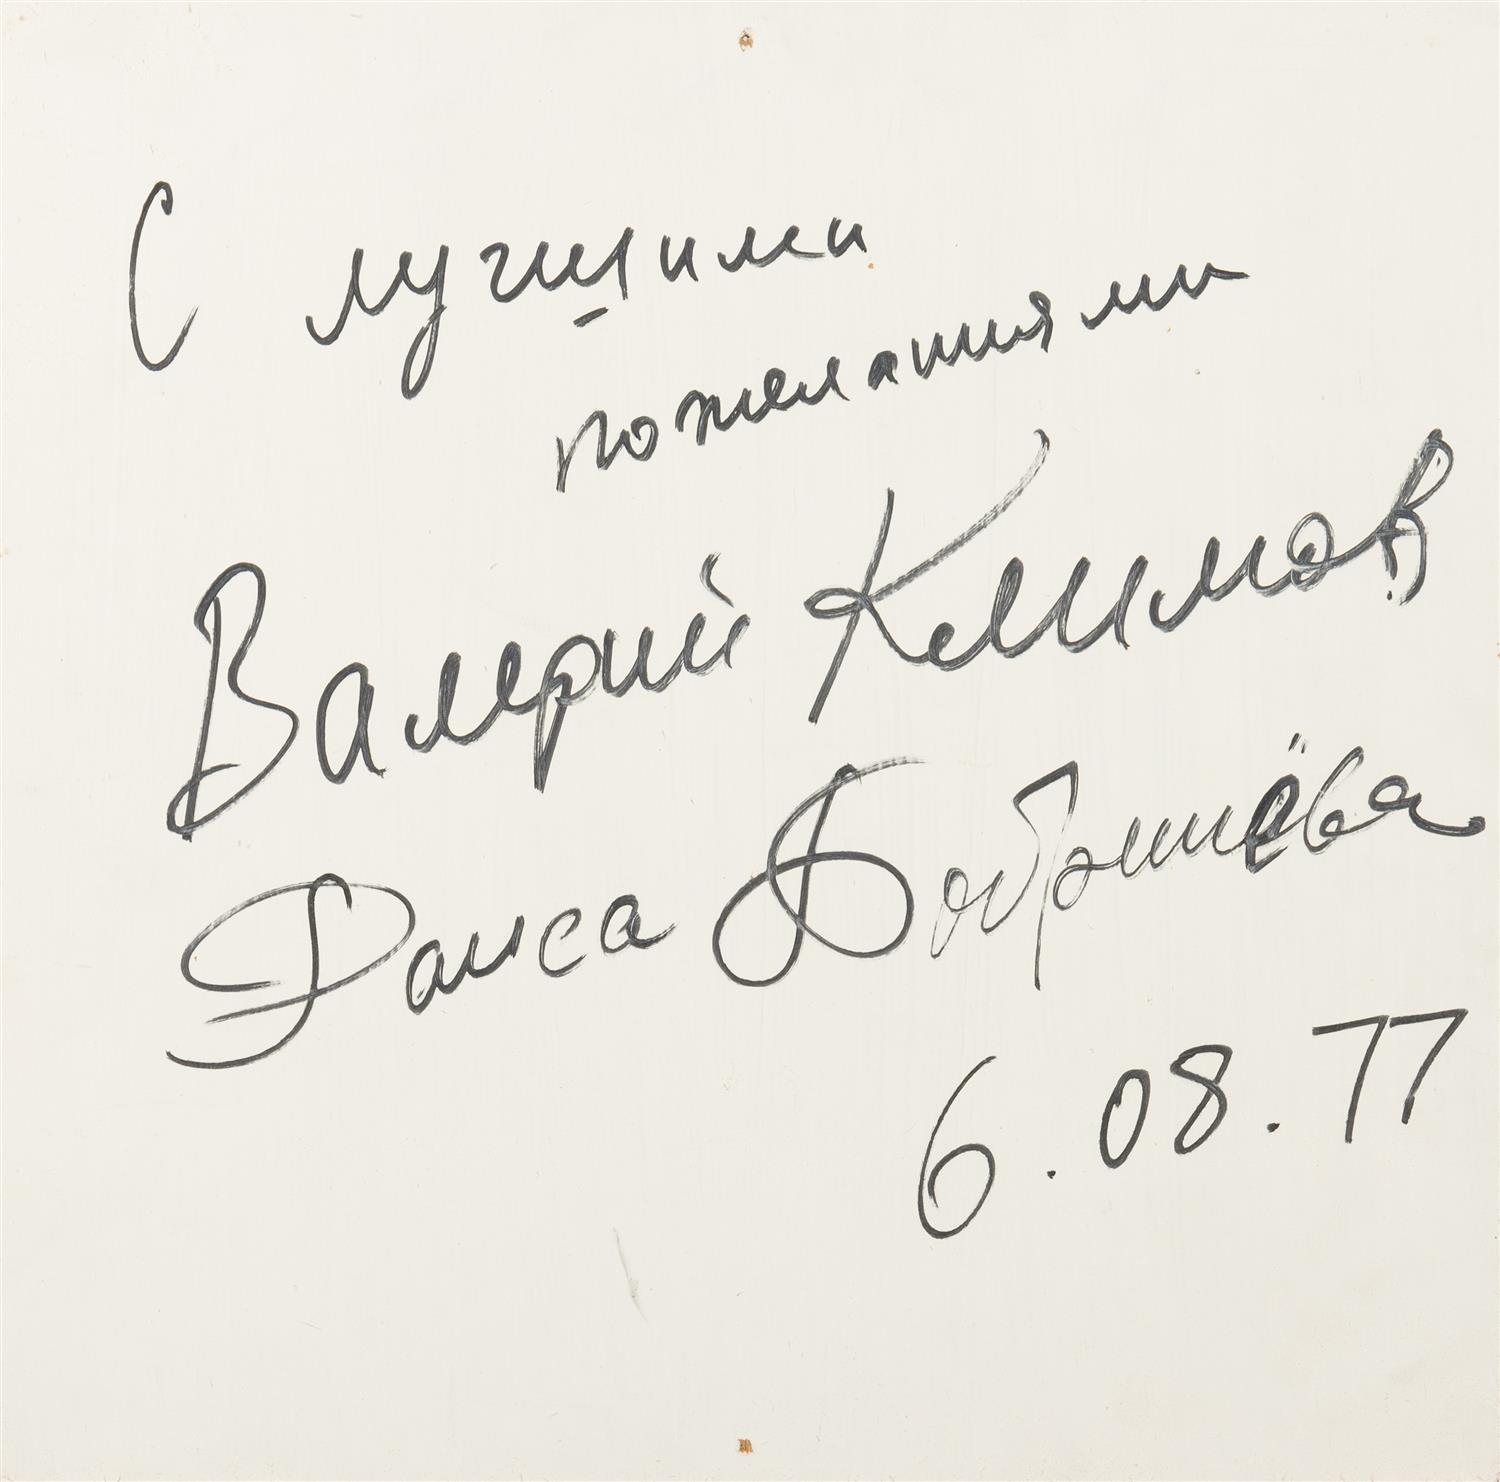 С лучшими
пожеланиями
Валерий Климов
Раиса Бобринёва
6.08.77